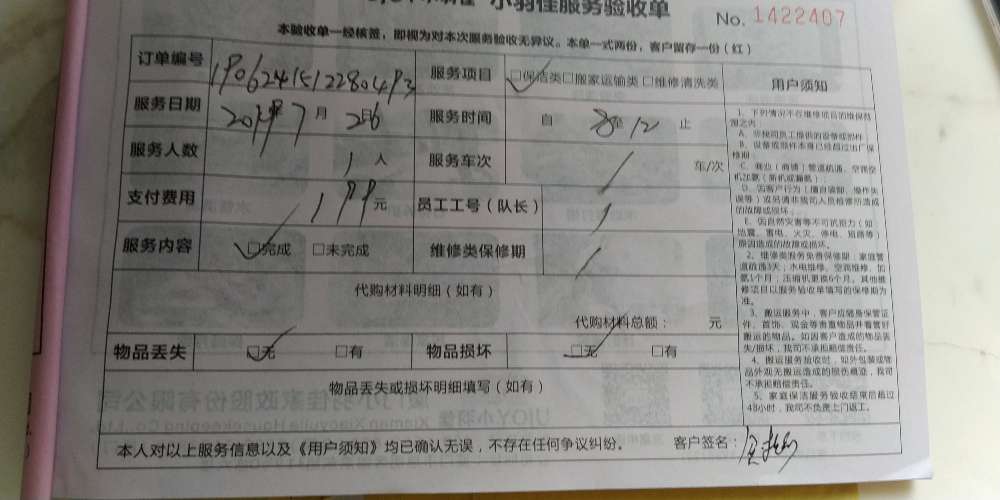 小羽佳服务验收单
No. 1422407
本验收单一经核签，即视为对本次服务验收无异议。本单一式两份，客户留存一份（红）
订单编号 190624151228049 服务项目 □保洁类□搬家运输类□维修清洗类 用户须知
服务日期 2019年7月26 服务时间 自 8至12 止
服务人数 1人 服务车次 / 车/次
支付费用 199元 员工工号（队长） /
服务内容 □完成 □未完成 维修类保修期 /
代购材料明细（如有）
代购材料总额： 元
物品丢失 □无 □有 物品损坏 □无 □有
物品丢失或损坏明细填写（如有）
本人对以上服务信息以及《用户须知》均已确认无误，不存在任何争议纠纷。 客户签名：
1、下列情况不在维修项目的维保范围之内
A、非我司员工提供的设备或部件
B、设备或部件本身已经超过出厂保修期
C、商业（商铺）管道疏通、空调空机加氨（新机或漏氨）
D、因客户行为（擅自装卸、操作失误等）或另请非我司人员检修所造成的故障或损坏；
E、因自然灾害等不可抗拒力（如地震、雷电、火灾、停电、短路等）原因造成的故障或损坏。
2、维修类服务免费保修期：家庭管道疏通3天；水电维修、空调维修、加氨1个月；压缩机更换6个月。其他维修项目以服务验收单填写的保修期为准。
3、搬运服务中，客户应随身保管证件、首饰、现金等贵重物品并看管好搬运的物品。如因客户造成的物品丢失/损坏，我司不承担赔偿责任。
4、搬运服务验收时，如外包装或物品外观无搬运造成的损伤痕迹，我司不承担赔偿责任。
5、家庭保洁服务验收结束后超过48小时，我司不负责上门返工。